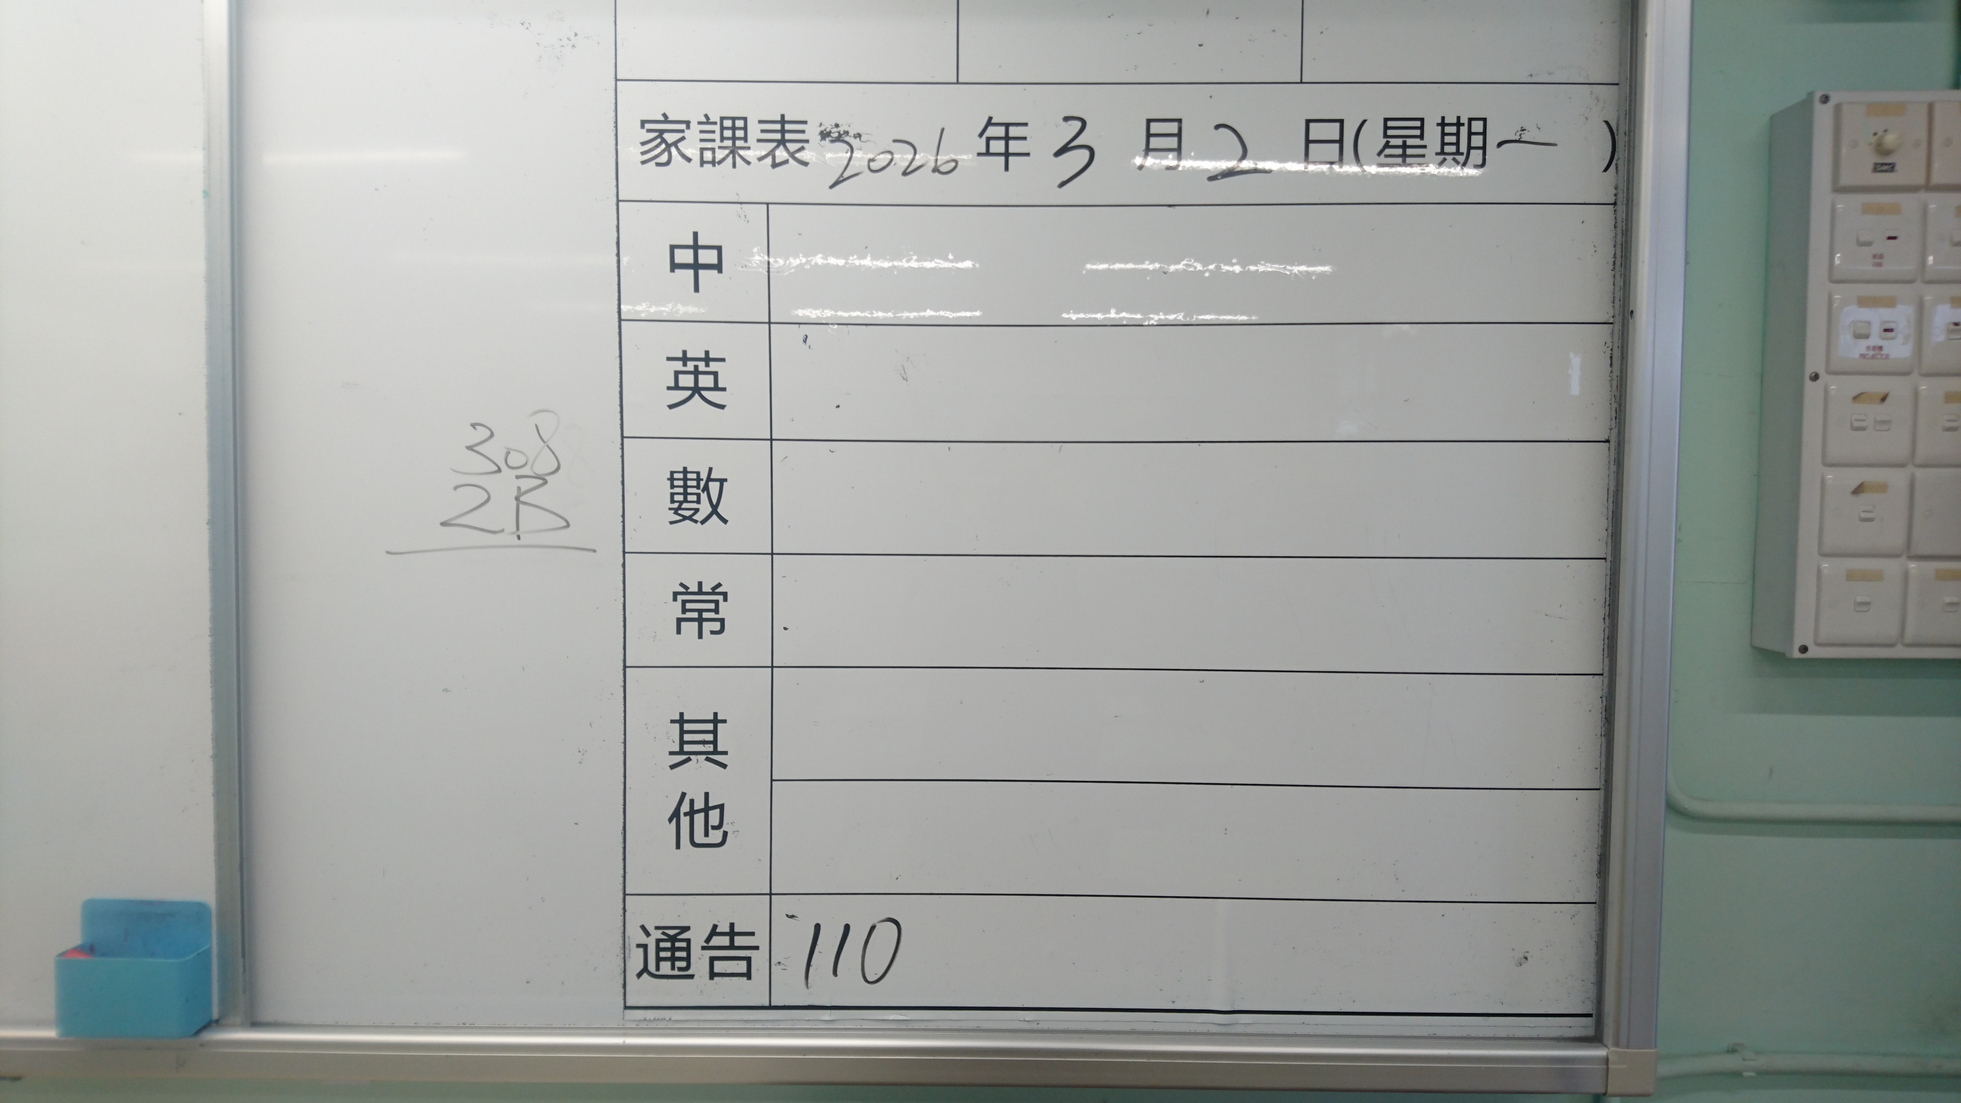 家課表 2026 年 3 月 2 日(星期一 )
中
英
308
2B
數
常
其
他
通告 110